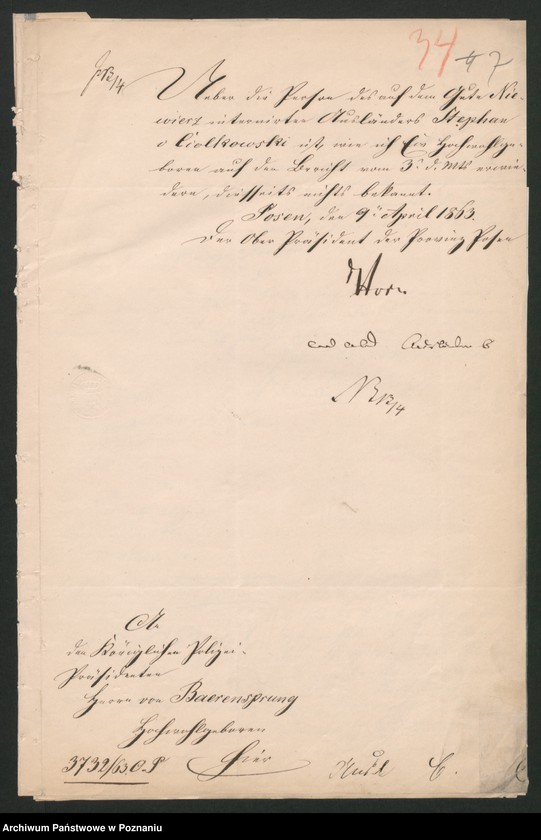 34
47
pr 12/4
Ueber die Person des auf dem Gute Nie-
wierz internirten Ausländers Stephan
v Ciolkowski ist, wie ich Ew Hochwohlge-
boren auf den Bericht vom 3t d. Mts erwie-
dere, diesseits nichts bekannt.
Posen, den 9t April 1863.
Der Ober Präsident der Provinz Posen
Horn
12/4
An
den Königlichen Polizei-
Präsidenten
Herrn von Baerensprung
Hochwohlgeboren
3732/63 O.P. hier
Archiwum Państwowe w Poznaniu